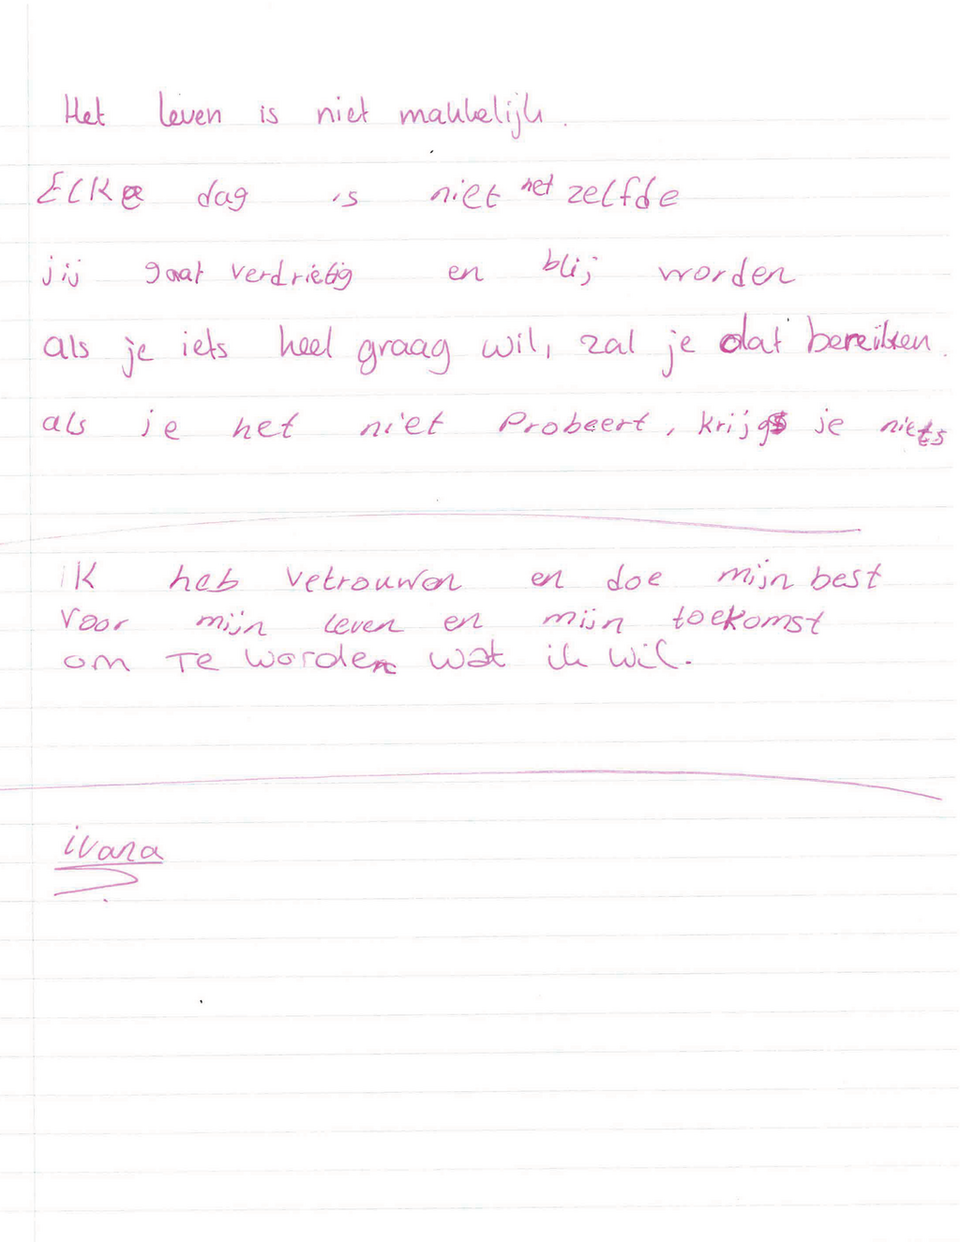 Het leven is niet makkelijk.
Elke dag is niet het zelfde
jij gaat verdrietig en blij worden
als je iets heel graag wil, zal je dat bereiken.
als je het niet Probeert, krijgs je niets
iK heb vetrouwen en doe mijn best
voor mijn leven en mijn toekomst
om Te worden wat ik wil.
ivana